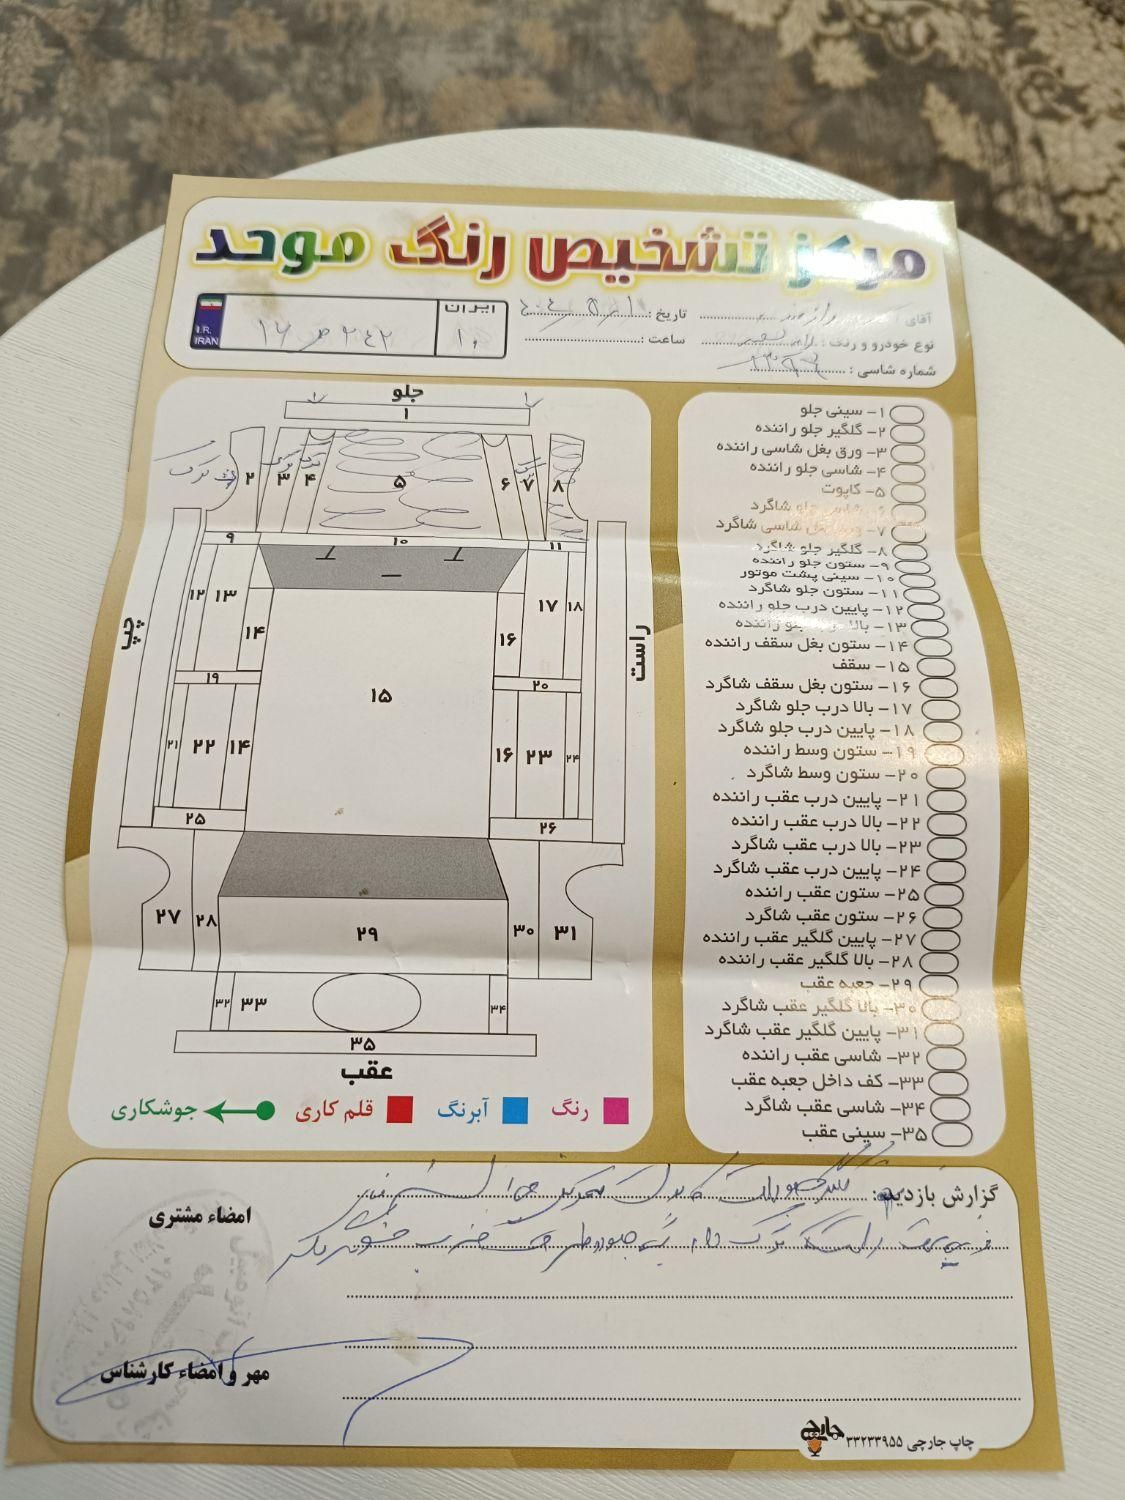 مرکز تشخیص رنگ موحد
آقای
تاریخ :
نوع خودرو و رنگ :
ساعت :
شماره شاسی :
ایران
۱۰
۲۴۲ ص ۱۶
I.R.
IRAN
جلو
۱
۲ ۳ ۴ ۵ ۶ ۷ ۸
ترک ترک
۹ ۱۰ ۱۱
۱۲ ۱۳ ۱۴ ۱۶ ۱۷ ۱۸
چپ
راست
۱۵
۱۹ ۲۰
۲۱ ۲۲ ۱۴ ۱۶ ۲۳ ۲۴
۲۵ ۲۶
۲۷ ۲۸ ۲۹ ۳۰ ۳۱
۳۲ ۳۳ ۳۴
۳۵
عقب
رنگ
آبرنگ
قلم کاری
جوشکاری
۱- سینی جلو
۲- گلگیر جلو راننده
۳- ورق بغل شاسی راننده
۴- شاسی جلو راننده
۵- کاپوت
۶- شاسی جلو شاگرد
۷- ورق بغل شاسی شاگرد
۸- گلگیر جلو شاگرد
۹- ستون جلو راننده
۱۰- سینی پشت موتور
۱۱- ستون جلو شاگرد
۱۲- پایین درب جلو راننده
۱۳- بالا درب جلو راننده
۱۴- ستون بغل سقف راننده
۱۵- سقف
۱۶- ستون بغل سقف شاگرد
۱۷- بالا درب جلو شاگرد
۱۸- پایین درب جلو شاگرد
۱۹- ستون وسط راننده
۲۰- ستون وسط شاگرد
۲۱- پایین درب عقب راننده
۲۲- بالا درب عقب راننده
۲۳- بالا درب عقب شاگرد
۲۴- پایین درب عقب شاگرد
۲۵- ستون عقب راننده
۲۶- ستون عقب شاگرد
۲۷- پایین گلگیر عقب راننده
۲۸- بالا گلگیر عقب راننده
۲۹- جعبه عقب
۳۰- بالا گلگیر عقب شاگرد
۳۱- پایین گلگیر عقب شاگرد
۳۲- شاسی عقب راننده
۳۳- کف داخل جعبه عقب
۳۴- شاسی عقب شاگرد
۳۵- سینی عقب
گزارش بازدید :
امضاء مشتری
مهر و امضاء کارشناس
چاپ جارچی ۳۳۲۳۳۹۵۵
جارچی